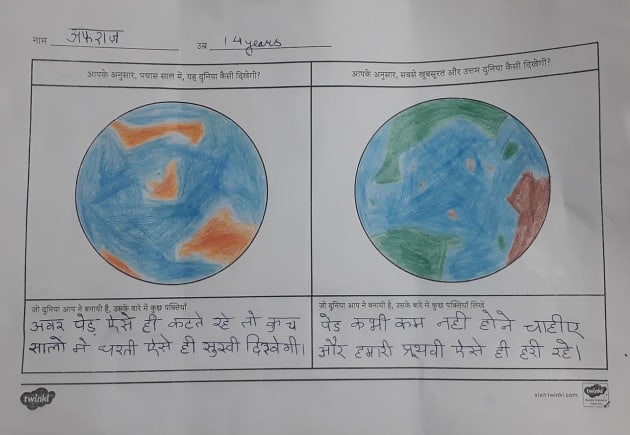 नाम अफराज उम्र 14 years
आपके अनुसार, पचास साल में, यह दुनिया कैसी दिखेगी?
आपके अनुसार, सबसे खूबसूरत और उत्तम दुनिया कैसी दिखेगी?
जो दुनिया आप ने बनायी है, उसके बारे में कुछ पंक्तियाँ
अगर पेड़ ऐसे ही कटते रहे तो कुच
सालो मे धरती ऐसे ही सुखी दिखेगी।
जो दुनिया आप ने बनायी है, उसके बारे में कुछ पंक्तियाँ लिखें
पेड कभी कम नही होने चाहीए
और हमारी प्रूथवी ऐसे ही हरी रहे।
twinkl
visit twinkl.com
twinkl